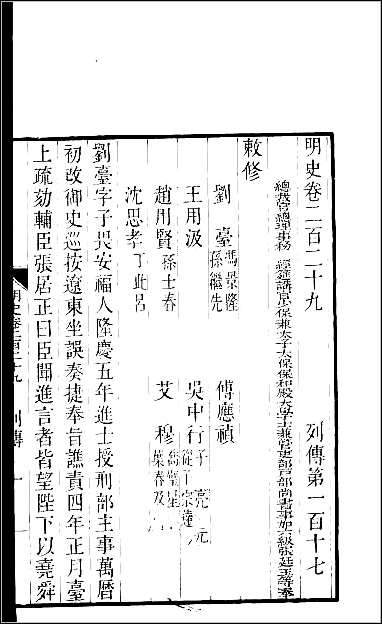 明史卷二百二十九 列傳第一百十七
總裁官總理事務 經筵講官少保兼太子太保保和殿大學士兼管吏部戶部尚書事加六級張廷玉等奉
敕修
劉臺 馮景隆 孫繼先 傅應禎
王用汲 吳中行 子亮 元 從子宗達
趙用賢 孫士春 艾穆 喬璧星 葉春及
沈思孝 丁此呂
劉臺字子畏安福人隆慶五年進士授刑部主事萬曆
初改御史巡按遼東坐誤奏捷奉旨譙責四年正月臺
上疏劾輔臣張居正曰臣聞進言者皆望陛下以堯舜
明史卷二百二十九 列傳 一